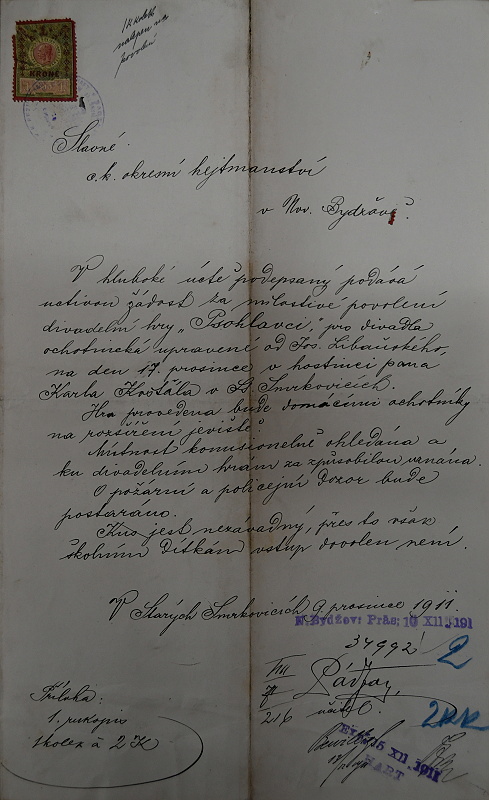 1 K kolek
nalepen na
povolení
KRONE
Slavné
c. k. okresní hejtmanství
v Nov. Bydžově.
V hluboké úctě podepsaný podává
uctivou žádost za milostivé povolení
divadelní hry „Psohlavci", pro divadla
ochotnická upravené od Jos. Libáňského,
na den 17. prosince v hostinci pana
Karla Košťála v St. Smrkovicích.
Hra provedena bude domácími ochotníky
na rozšíření jeviště.
Místnost komisionelně ohledána a
ku divadelním hrám za způsobilou uznána.
O požární a policejní dozor bude
postaráno.
Kus jest nezávadný, přes to však
školním dítkám vstup dovolen není.
V Starých Smrkovicích 9. prosince 1911.
N. Bydžov: Präs: 10 XII. 191
34992
2
VIII
7
216
učitel
Příloha:
1. rukopis
kolek à 2 K
2 KK
15 XII. 1911